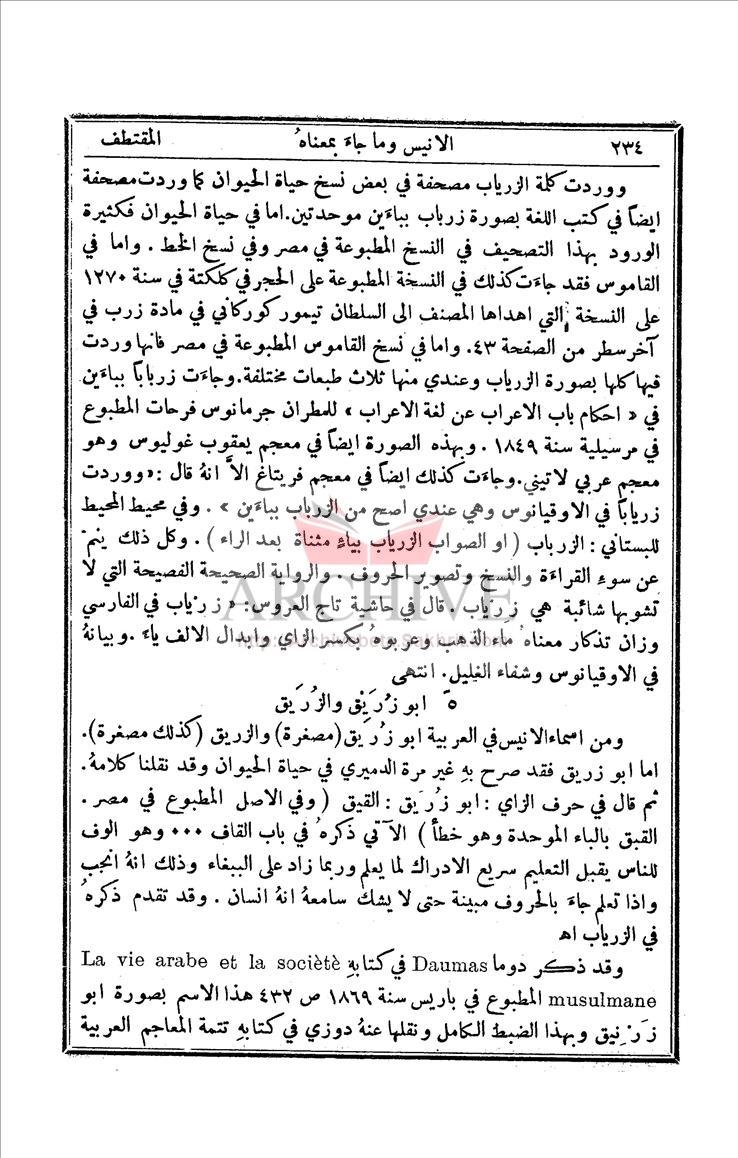 ٢٣٤ الانيس وما جاءَ بمعناهُ المقتطف
ووردت كلمة الزرياب مصحفة في بعض نسخ حياة الحيوان كما وردت مصحفة
ايضاً في كتب اللغة بصورة زرباب بباءَين موحدتين.اما في حياة الحيوان فكثيرة
الورود بهذا التصحيف في النسخ المطبوعة في مصر وفي نسخ الخط . واما في
القاموس فقد جاءَت كذلك في النسخة المطبوعة على الحجر في كلكتة في سنة ١٢٧٠
على النسخة التي اهداها المصنف الى السلطان تيمور كوركاني في مادة زرب في
آخر سطر من الصفحة ٤٣. واما في نسخ القاموس المطبوعة في مصر فانها وردت
فيها كلها بصورة الزرياب وعندي منها ثلاث طبعات مختلفة.وجاءَت زرباباً بباءَين
في « احكام باب الاعراب عن لغة الاعراب » للمطران جرمانوس فرحات المطبوع
في مرسيلية سنة ١٨٤٩ . وبهذه الصورة ايضاً في معجم يعقوب غوليوس وهو
معجم عربي لاتيني.وجاءَت كذلك ايضاً في معجم فريتاغ الاَّ انهُ قال :«ووردت
زرياباً في الاوقيانوس وهي عندي اصح من الزرباب بباءَين » . وفي محيط المحيط
للبستاني : الزرباب ( او الصواب الزرياب بياءٍ مثناة بعد الراء ) . وكل ذلك ينمّ
عن سوءِ القراءَة والنسخ وتصوير الحروف . والرواية الصحيحة الفصيحة التي لا
تشوبها شائبة هي زِرْياب . قال في حاشية تاج العروس: « زرْياب في الفارسي
وزان تذكار معناهُ ماءُ الذهب وعربوهُ بكسر الزاي وابدال الالف ياءً .وبيانهُ
في الاوقيانوس وشفاء الغليل. انتهى
ARCHIVE
http://archivebeta.Sakhrit.com
٥ً ابو زُرَيْق والزُرَيق
ومن اسماء الانيس في العربية ابو زُرَيق (مصغرة) والزريق (كذلك مصغرة).
اما ابو زريق فقد صرح بهِ غير مرة الدميري في حياة الحيوان وقد نقلنا كلامهُ.
ثم قال في حرف الزاي : ابو زُرَيق : القيق ( وفي الاصل المطبوع في مصر .
القبق بالباء الموحدة وهو خطأ ) الآتي ذكرهُ في باب القاف ٠٠٠ وهو الوف
للناس يقبل التعليم سريع الادراك لما يعلم وربما زاد على الببغاء وذلك انهُ انجب
واذا تعلم جاءَ بالحروف مبينة حتى لا يشك سامعهُ انهُ انسان . وقد تقدم ذكرهُ
في الزرياب اه
وقد ذكر دوما Daumas في كتابهِ La vie arabe et la sociètè
musulmane المطبوع في باريس سنة ١٨٦٩ ص ٤٣٢ هذا الاسم بصورة ابو
زَرْنيق وبهذا الضبط الكامل ونقلها عنهُ دوزي في كتابهِ تتمة المعاجم العربية